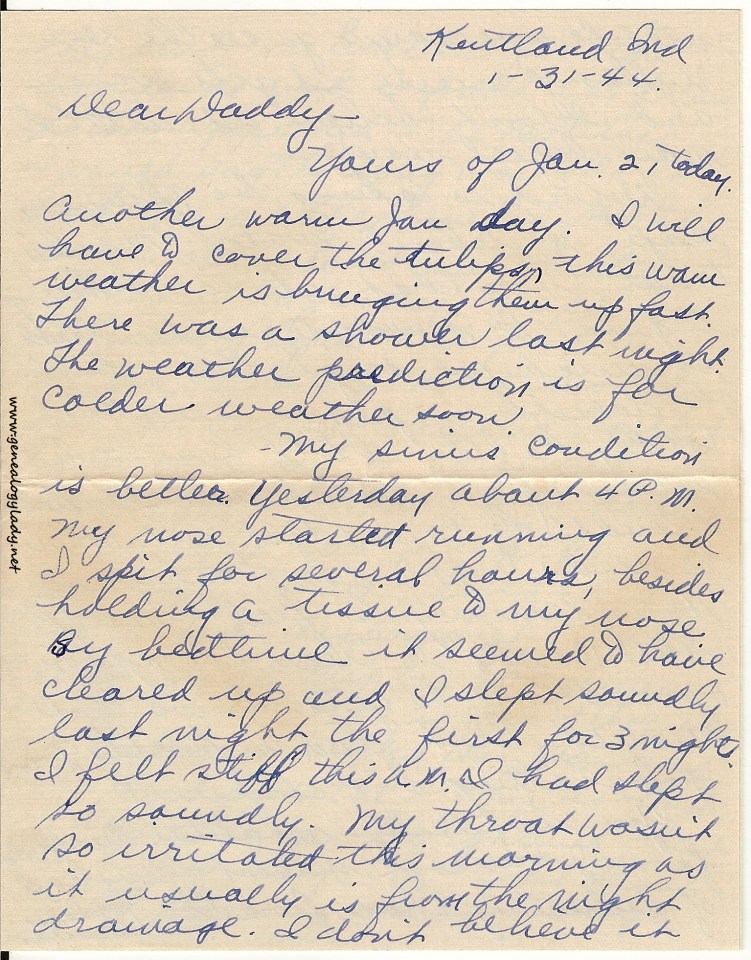 Kentland Ind
1-31-44.
Dear Daddy-
Yours of Jan. 21 today.
Another warm Jan day. I will
have to cover the tulips, this warm
weather is bringing them up fast.
There was a shower last night.
The weather prediction is for
colder weather soon
-My sinus condition
is better. Yesterday about 4 P.M.
my nose started running and
I spit for several hours, besides
holding a tissue to my nose
By bedtime it seemed to have
cleared up and I slept soundly
last night the first for 3 nights.
I felt stiff this A.M. I had slept
so soundly. My throat wasn't
so irritated this morning as
it usually is from the night
drainage. I don't believe it
www.genealogylady.net